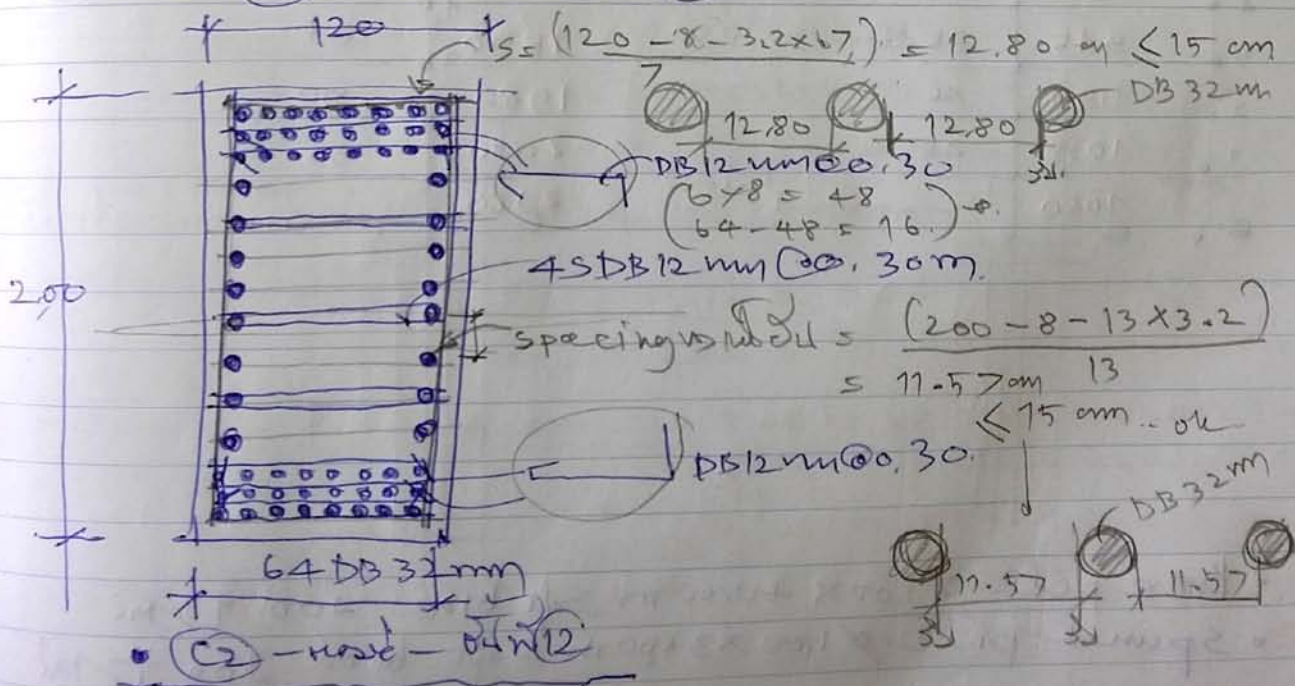 120
S = (120 - 8 - 3.2x7) = 12.80 cm ≤ 15 cm
7
DB 32 m
12.80
12.80
DB12 mm @ 0.30
3.2
(6x8 = 48
64 - 48 = 16)
4SDB12 mm @ 0.30 m.
2.00
spacing = (200 - 8 - 13 x 3.2)
13
= 11.57 cm
≤ 15 cm .. ok
DB12 mm @ 0.30.
DB 32 m
11.57
11.57
64 DB 32 mm
• C2 - 12